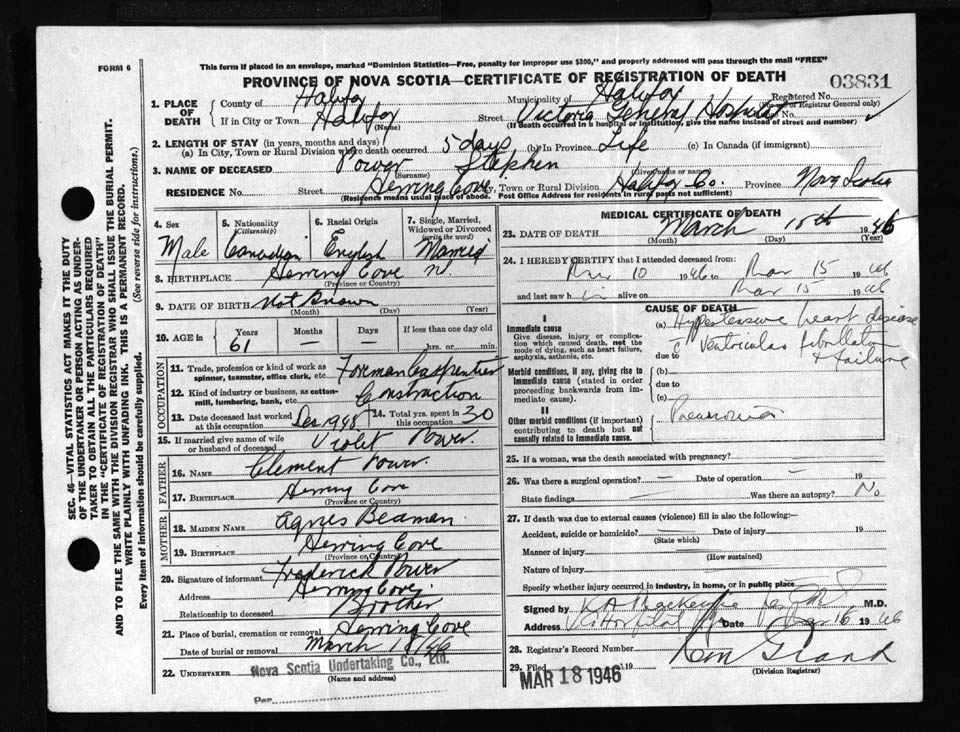 FORM 6
This form if placed in an envelope, marked "Dominion Statistics—Free, penalty for improper use $300," and properly addressed will pass through the mail "FREE"
PROVINCE OF NOVA SCOTIA—CERTIFICATE OF REGISTRATION OF DEATH
03831
SEC. 46—VITAL STATISTICS ACT MAKES IT THE DUTY
OF THE UNDERTAKER OR PERSON ACTING AS UNDER-
TAKER TO OBTAIN ALL THE PARTICULARS REQUIRED
IN THE "CERTIFICATE OF REGISTRATION OF DEATH"
AND TO FILE THE SAME WITH THE DIVISION REGISTRAR WHO SHALL ISSUE THE BURIAL PERMIT.
WRITE PLAINLY WITH UNFADING INK. THIS IS A PERMANENT RECORD.
Every item of information should be carefully supplied. (See reverse side for instructions.)
1. PLACE OF DEATH County of Halifax Municipality of Halifax Registered No.
(Registrar General only)
If in City or Town Halifax (Name) Street Victoria General Hospital No.
(If death occurred in a hospital or institution, give the name instead of street and number)
2. LENGTH OF STAY (in years, months and days)
(a) In City, Town or Rural Division where death occurred 5 days (b) In Province Life (c) In Canada (if immigrant)
3. NAME OF DECEASED Power Stephen
(Surname) (Given name or names)
RESIDENCE No. Street Herring Cove City, Town or Rural Division Halifax Co. Province Nova Scotia
(Residence means usual place of abode. Post Office Address for residents in rural parts not sufficient)
4. Sex Male
5. Nationality (Citizenship) Canadian
6. Racial Origin English
7. Single, Married, Widowed or Divorced (write the word) Married
8. BIRTHPLACE Herring Cove
(Province or Country)
9. DATE OF BIRTH Not Known
(Month) (Day) (Year)
10. AGE in Years 61 Months — Days — If less than one day hrs. or min.
OCCUPATION
11. Trade, profession or kind of work as spinner, teamster, office clerk, etc. Foreman Carpenter
12. Kind of industry or business, as cotton-mill, lumbering, bank, etc. Construction
13. Date deceased last worked at this occupation Dec 1945
14. Total yrs. spent in this occupation 30
15. If married give name of wife or husband of deceased Violet Power
FATHER
16. NAME Clement Power
17. BIRTHPLACE Herring Cove
(Province or Country)
MOTHER
18. MAIDEN NAME Agnes Beaman
19. BIRTHPLACE Herring Cove
(Province or Country)
20. Signature of informant Frederick Power
Address Herring Cove
Relationship to deceased Brother
21. Place of burial, cremation or removal Herring Cove
Date of burial or removal March 18/46
22. UNDERTAKER Nova Scotia Undertaking Co., Ltd.
(Name and address)
Per
MEDICAL CERTIFICATE OF DEATH
23. DATE OF DEATH March 15th 1946
(Month) (Day) (Year)
24. I HEREBY CERTIFY that I attended deceased from:
10 1946 to Mar 15 1946
and last saw him alive on Mar 15 1946
CAUSE OF DEATH
I
Immediate cause
Give disease, injury or complication which caused death, not the mode of dying, such as heart failure, asphyxia, asthenia, etc.
(a) Hypertensive heart disease
due to c ventricular fibrillation
& failure
Morbid conditions, if any, giving rise to immediate cause (stated in order proceeding backwards from immediate cause).
(b)
due to
(c)
II
Other morbid conditions (if important) contributing to death but not causally related to immediate cause.
Pneumonia
25. If a woman, was the death associated with pregnancy? —
26. Was there a surgical operation? — Date of operation — 19
State findings — Was there an autopsy? No
27. If death was due to external causes (violence) fill in also the following:—
Accident, suicide or homicide? Date of injury 19
(State which)
Manner of injury
(How sustained)
Nature of injury
Specify whether injury occurred in industry, in home, or in public place
Signed by K A MacKenzie M.D.
Address Date Mar 16 1946
28. Registrar's Record Number
29. Filed MAR 18 1946 19
(Division Registrar)